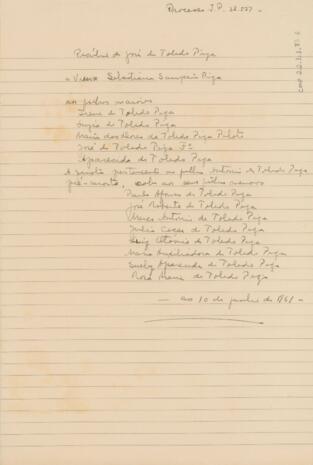 Processo J.P. 28.577 -
Pecúlio de José de Toledo Piza
a Viuva Sebastiana Sampaio Piza
aos filhos maiores
Irene de Toledo Piza
de Toledo Piza
Maria das Dores de Toledo Piza Piloto
José de Toledo Piza Fº
Aparecida de Toledo Piza
A quota pertencente ao filho Antonio de Toledo Piza
pré-morto, coube aos seus filhos menores
Paulo Afonso de Toledo Piza
José Roberto de Toledo Piza
Marco Antonio de Toledo Piza
Julio Cezar de Toledo Piza
Luiz Antonio de Toledo Piza
Maria Auxiliadora de Toledo Piza
Suely Aparecida de Toledo Piza
Rosa Maria de Toledo Piza
— aos 10 de junho de 1961 -